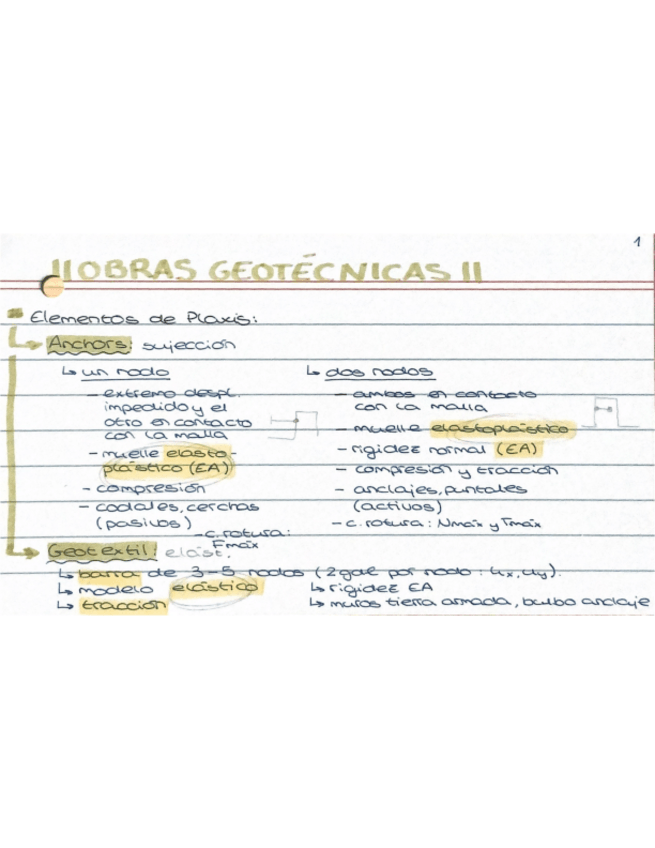 1
OBRAS GEOTÉCNICAS II
Elementos de Plaxis:
Anchors: sujección
↳ un nodo
- extremo despl.
impedido y el
otro en contacto
con la malla
- muelle elasto-
plástico (EA)
- compresión
- codales, cerchas
(pasivos)
- c. rotura:
Fmáx
↳ dos nodos
- ambos en contacto
con la malla
- muelle elastoplástico
- rigidez normal (EA)
- compresión y tracción
- anclajes, puntales
(activos)
- c. rotura: Nmáx y Tmáx
Geotextil: elást.
↳ barra de 3-5 nodos (2gdl por nodo: ux, uy).
↳ modelo elástico
↳ tracción
↳ rigidez EA
↳ muros tierra armada, bulbo anclaje